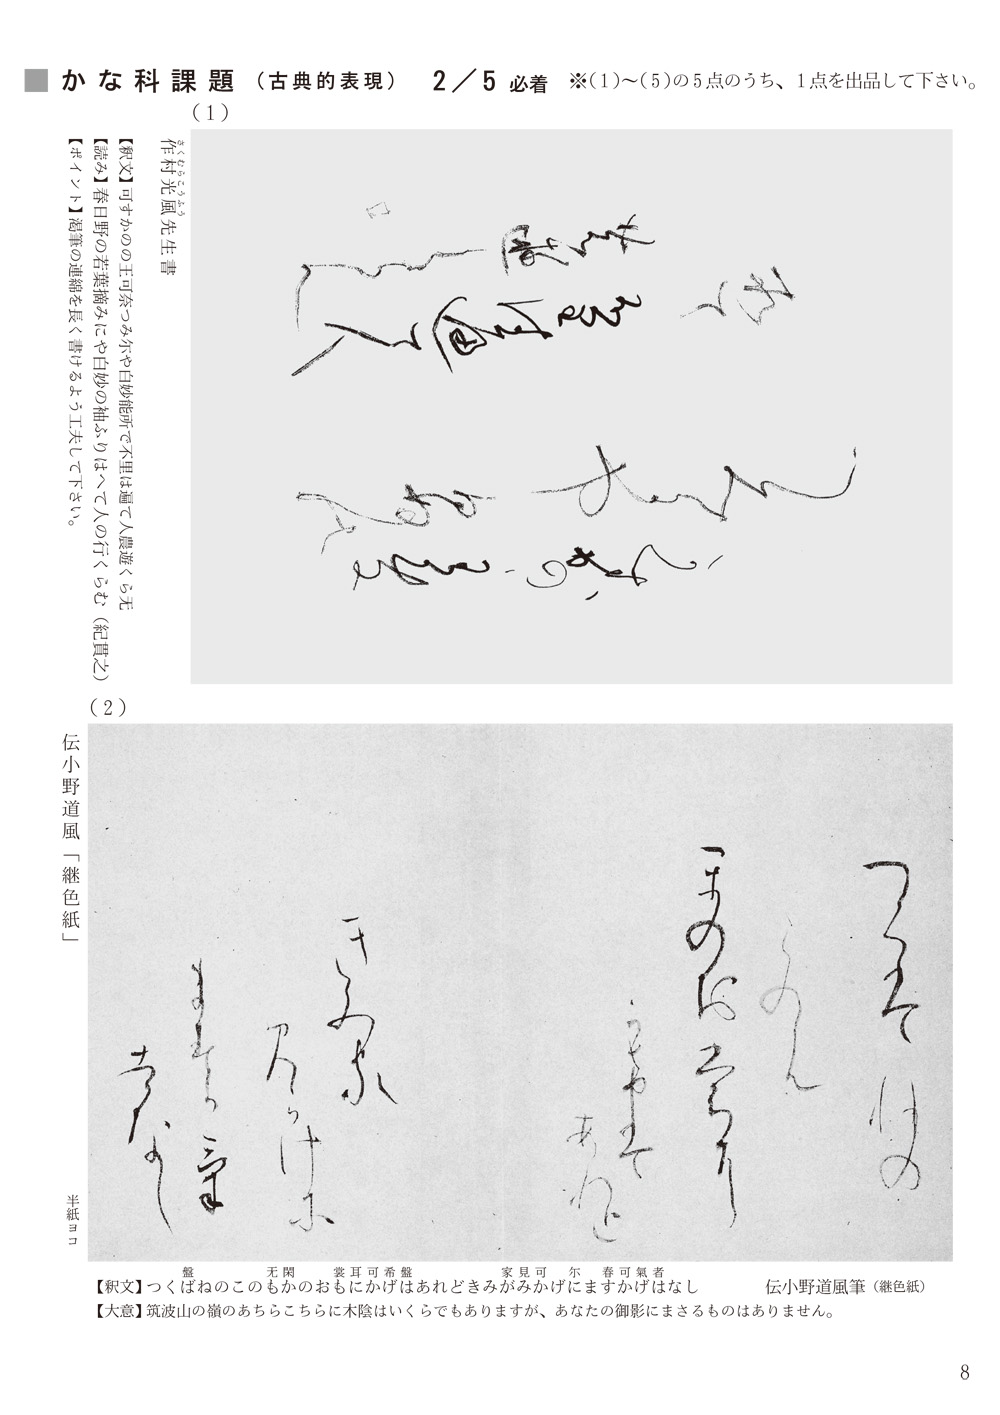 ■かな科課題（古典的表現） 2／5 必着 ※（1）〜（5）の5点のうち、1点を出品して下さい。
（1）
作村光風先生書
さくむらこうふう
【釈文】可すかのの王可奈つみ尓や白妙能所で不里は遍て人農遊くら无
【読み】春日野の若葉摘みにや白妙の袖ふりはへて人の行くらむ（紀貫之）
【ポイント】渇筆の連綿を長く書けるよう工夫して下さい。
（2）
伝小野道風「継色紙」
半紙ヨコ
盤 无閑 裳耳可希盤 家見可 尓 春可氣者
【釈文】つくばねのこのもかのおもにかげはあれどきみがみかげにますかげはなし 伝小野道風筆（継色紙）
【大意】筑波山の嶺のあちらこちらに木陰はいくらでもありますが、あなたの御影にまさるものはありません。
8